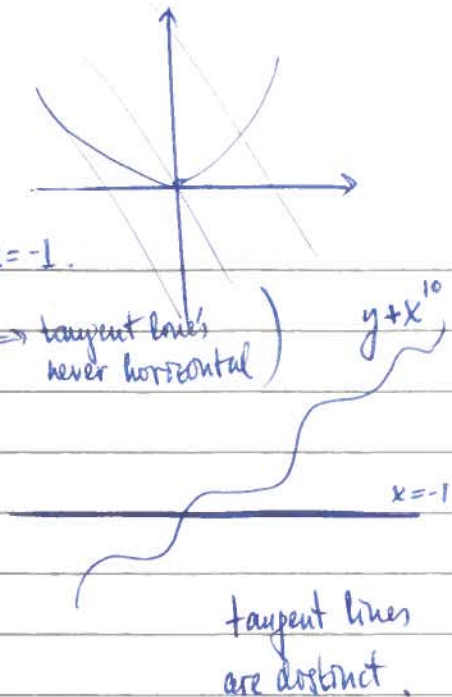 = -1.
⇒ tangent line's
never horizontal )
y + x^10
x = -1
tangent lines
are distinct.